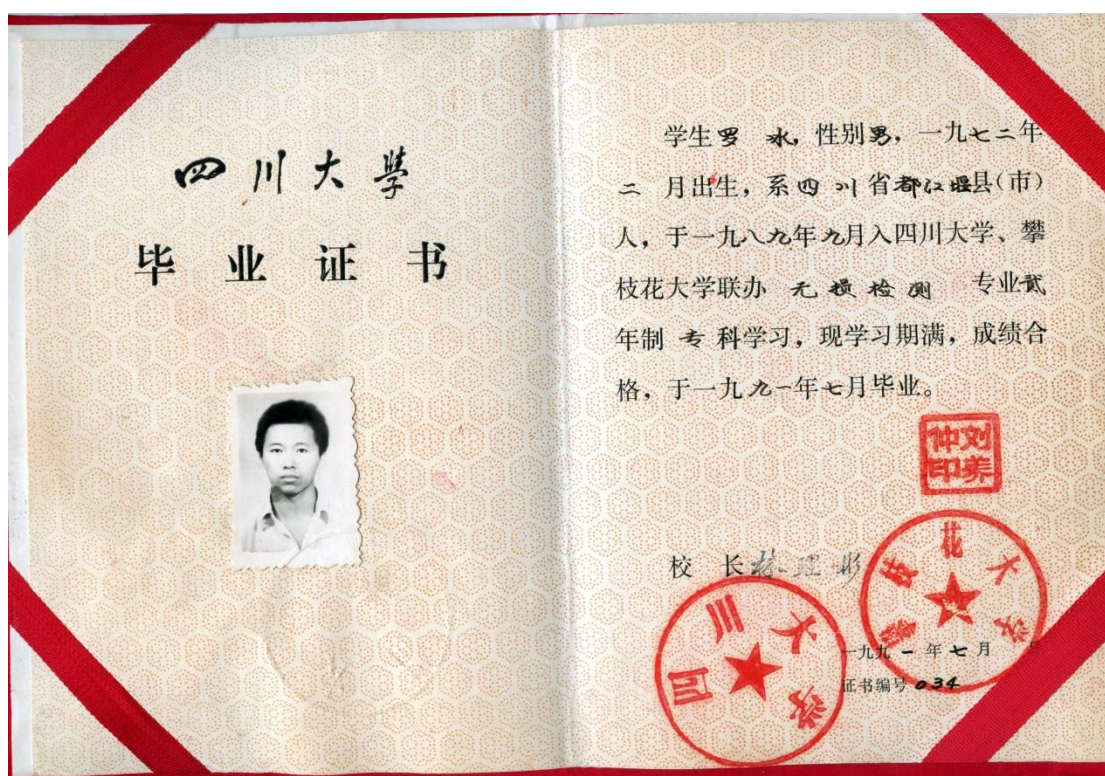 四川大学
毕业证书
学生罗 水，性别男，一九七二年
二 月出生，系四川省都江堰县（市）
人，于一九八九年九月入四川大学、攀
枝花大学联办 无损检测 专业贰
年制 专 科学习，现学习期满，成绩合
格，于一九九一年七月毕业。
刘养
仲印
校 长 林理彬
攀枝花大学
四川大学
一九九一年七月 日
证书编号034